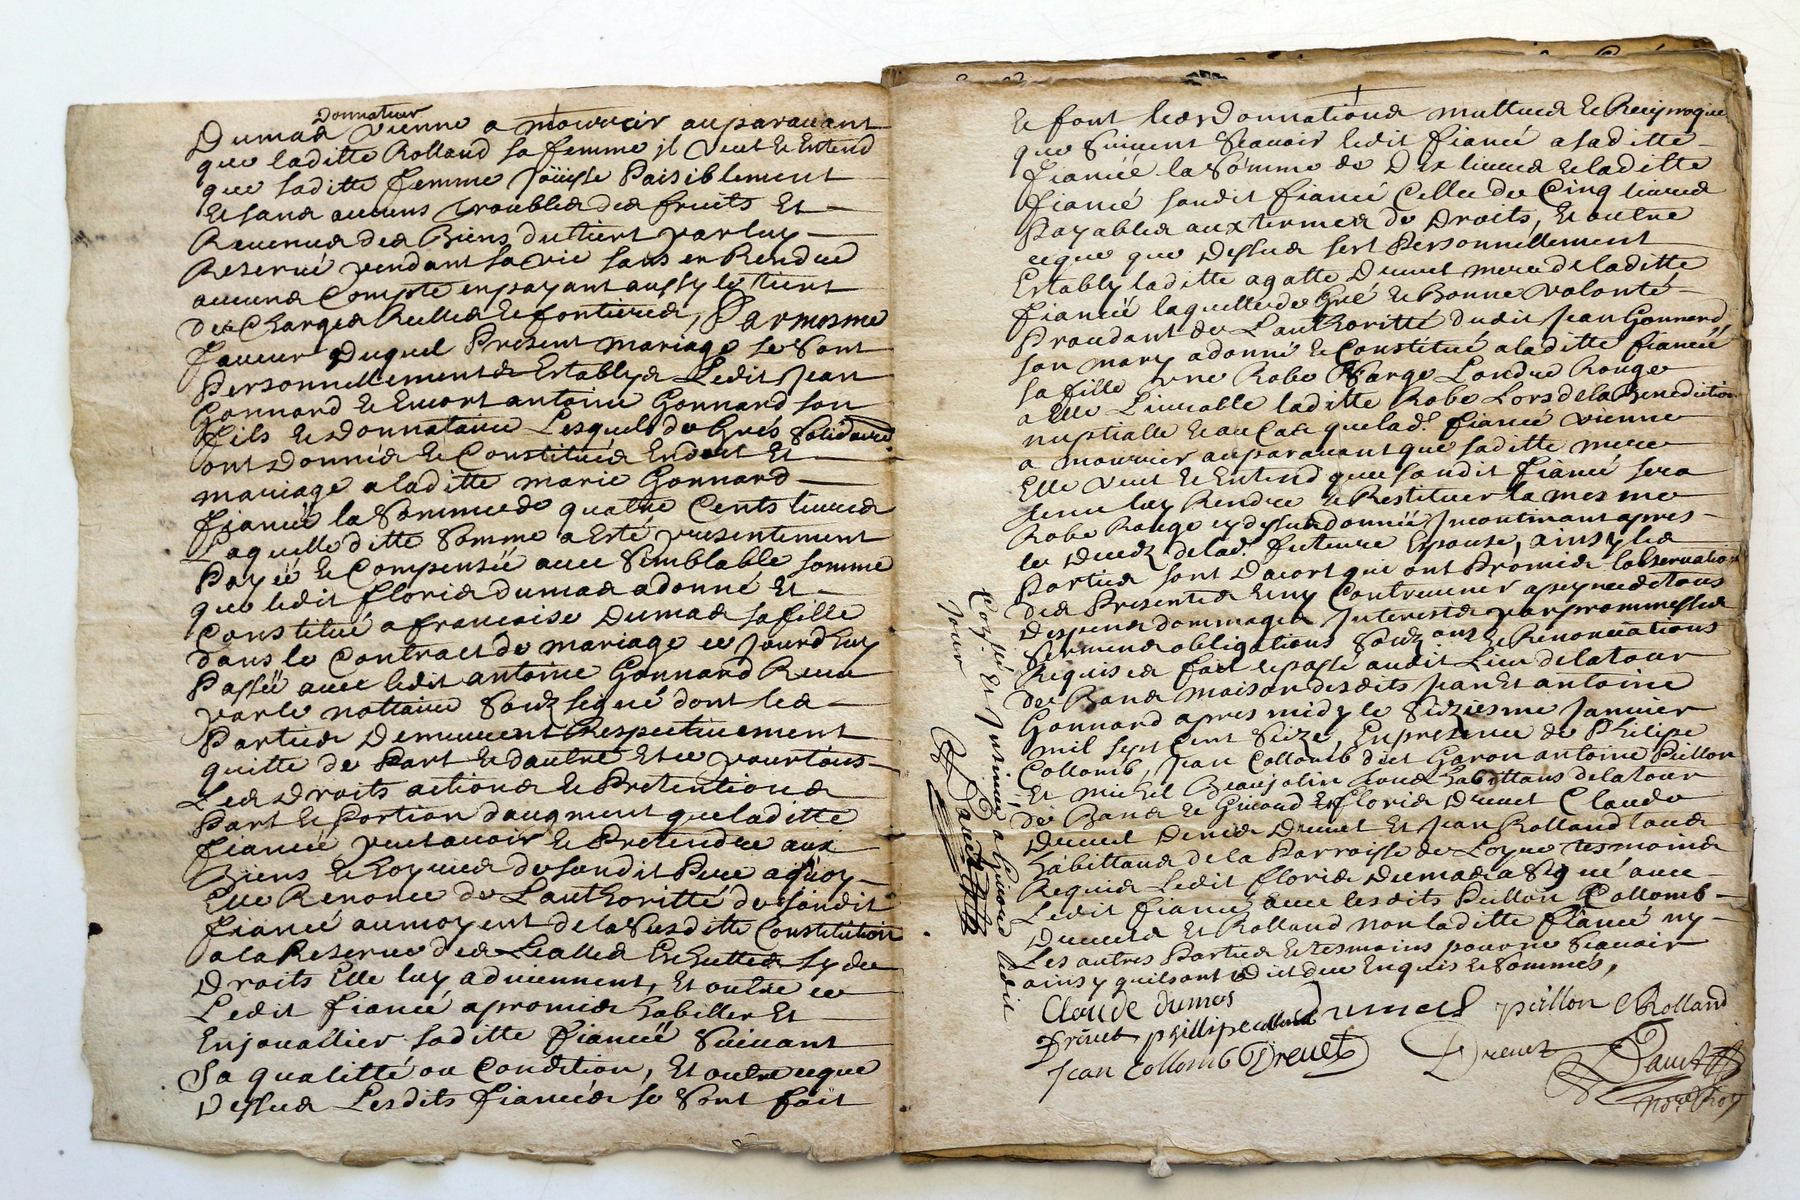 Donnateur
Dumas vienne a mourir auparavant
que laditte Rolland sa femme jl veut & Entend
que saditte femme joüisse Paisiblement
Et sans aucuns troubles des fruits Et
Revenus des Biens dutiert par luy
Reservé pendant sa vie sans en Rendre
aucuns Compte en payant aussy le tiert
des Charges Reelles & fontieres, Par mesme
faveur Duquel Present mariage se sont
Personnellements Establys Ledit Jean
Gonnard & Encort antoine Gonnard son
fils & Donnataire Lesquels de Gres Solidaire
ont Donnés & Constitués En dot Et
mariage a laditte marie Gonnard
fiancée la Somme de quatre Cents livres
Laquelle ditte Somme a Esté presentement
Payée & Compensée avec Semblable somme
que ledit floris dumas a donné Et
Constitué a francoise Dumas sa fille
dans le Contract de mariage ce Jourdhuy
Passé avec ledit antoine Gonnard Receu
par le nottaire Souzsigné dont les
Parties Demeurent Respectivement
quitte de Part & dautre Et ce pour tous
Les Droits actions & Pretentions
Part & Portion daugment que laditte
fiancée peut avoir & Pretendre aux
Biens & hoyries de sondit Pere a quoy
Elle Renonce de L'authoritté de sondit
fiancé au moyent de la Susditte Constitution
a la Reserve des Lealles Escuttes sy de
Droits Elle luy adviennent, Et outre ce
Ledit fiancé a promis habiller Et
Enjouallier saditte fiancée Suivant
Sa qualitté ou Condition, Et outre ceque
Dessus Lesdits fiancés se Sont fait
& font les Donnations mutuus & Reciproque
que Suivent Scavoir ledit fiancé a saditte
fiancée la Somme de Dix livres & laditte
fiancé sondit fiancé Celle de Cinq livres
Payables aux termes de Droits, Et outre
ceque que Dessus sest Personnellement
Estably laditte agatte Drevet mere de laditte
fiancée laquelle de Gré & Bonne volonté
Procedant de L'authoritté dudit Jean Gonnard
son mary a donné & Constitué a laditte fiancée
sa fille une Robe Sarge Londre Rouge
a Elle Livrable laditte Robe Lors de la Benediction
nuptialle & au Cas que lad. fiancée vienne
a mourrir auparavant que saditte mere
Elle veut & Entend que sondit fiancé sera
tenu luy Rendre & Restituer la mesme
Robe Rouge cy dessus donnée Jncontinant apres
les Deceds de lad. future Espouse, ainsy les
Parties sont Dacort que ont Promis lobservation
des Presentes & ny Contrevenir a peyne de tous
Despens dommages Interests par prommesses
Serments obligations Souz ons & Renonciations
Requises fait & passé audit Lieu de la tour
des Bans maison desdits Jean Et antoine
Gonnard apres midy le Seiziesme Janvier
mil sept Cent Seize, En presence de Philipe
Collomb, Jean Collomb dict Garon antoine Pullon
Et michel Beaujolin tous habittans de la tour
des Bans & Floris Drevet Claude
Drevet Denis Drevet Et Jean Rolland tous
habittans de la Parroisse de Loyre tesmoins
Requis Ledit floris Dumas a Signé avec
Ledit fiancé avec lesdits Pullon Collomb
Drevets Et Rolland non laditte fiancée ny
Les autres Parties & tesmoins pour ne Scavoir
ainsy quils ont Dict de ce Enquis & Sommés,
Con.lé Et Insinué a Givord ledit
Jour
Dauet
Claude dumas
Dumas
pullon
Rolland
Drevet
phillipe collomb
Jean Collomb
Drevet
Drevet
Dauet
Nore Roy